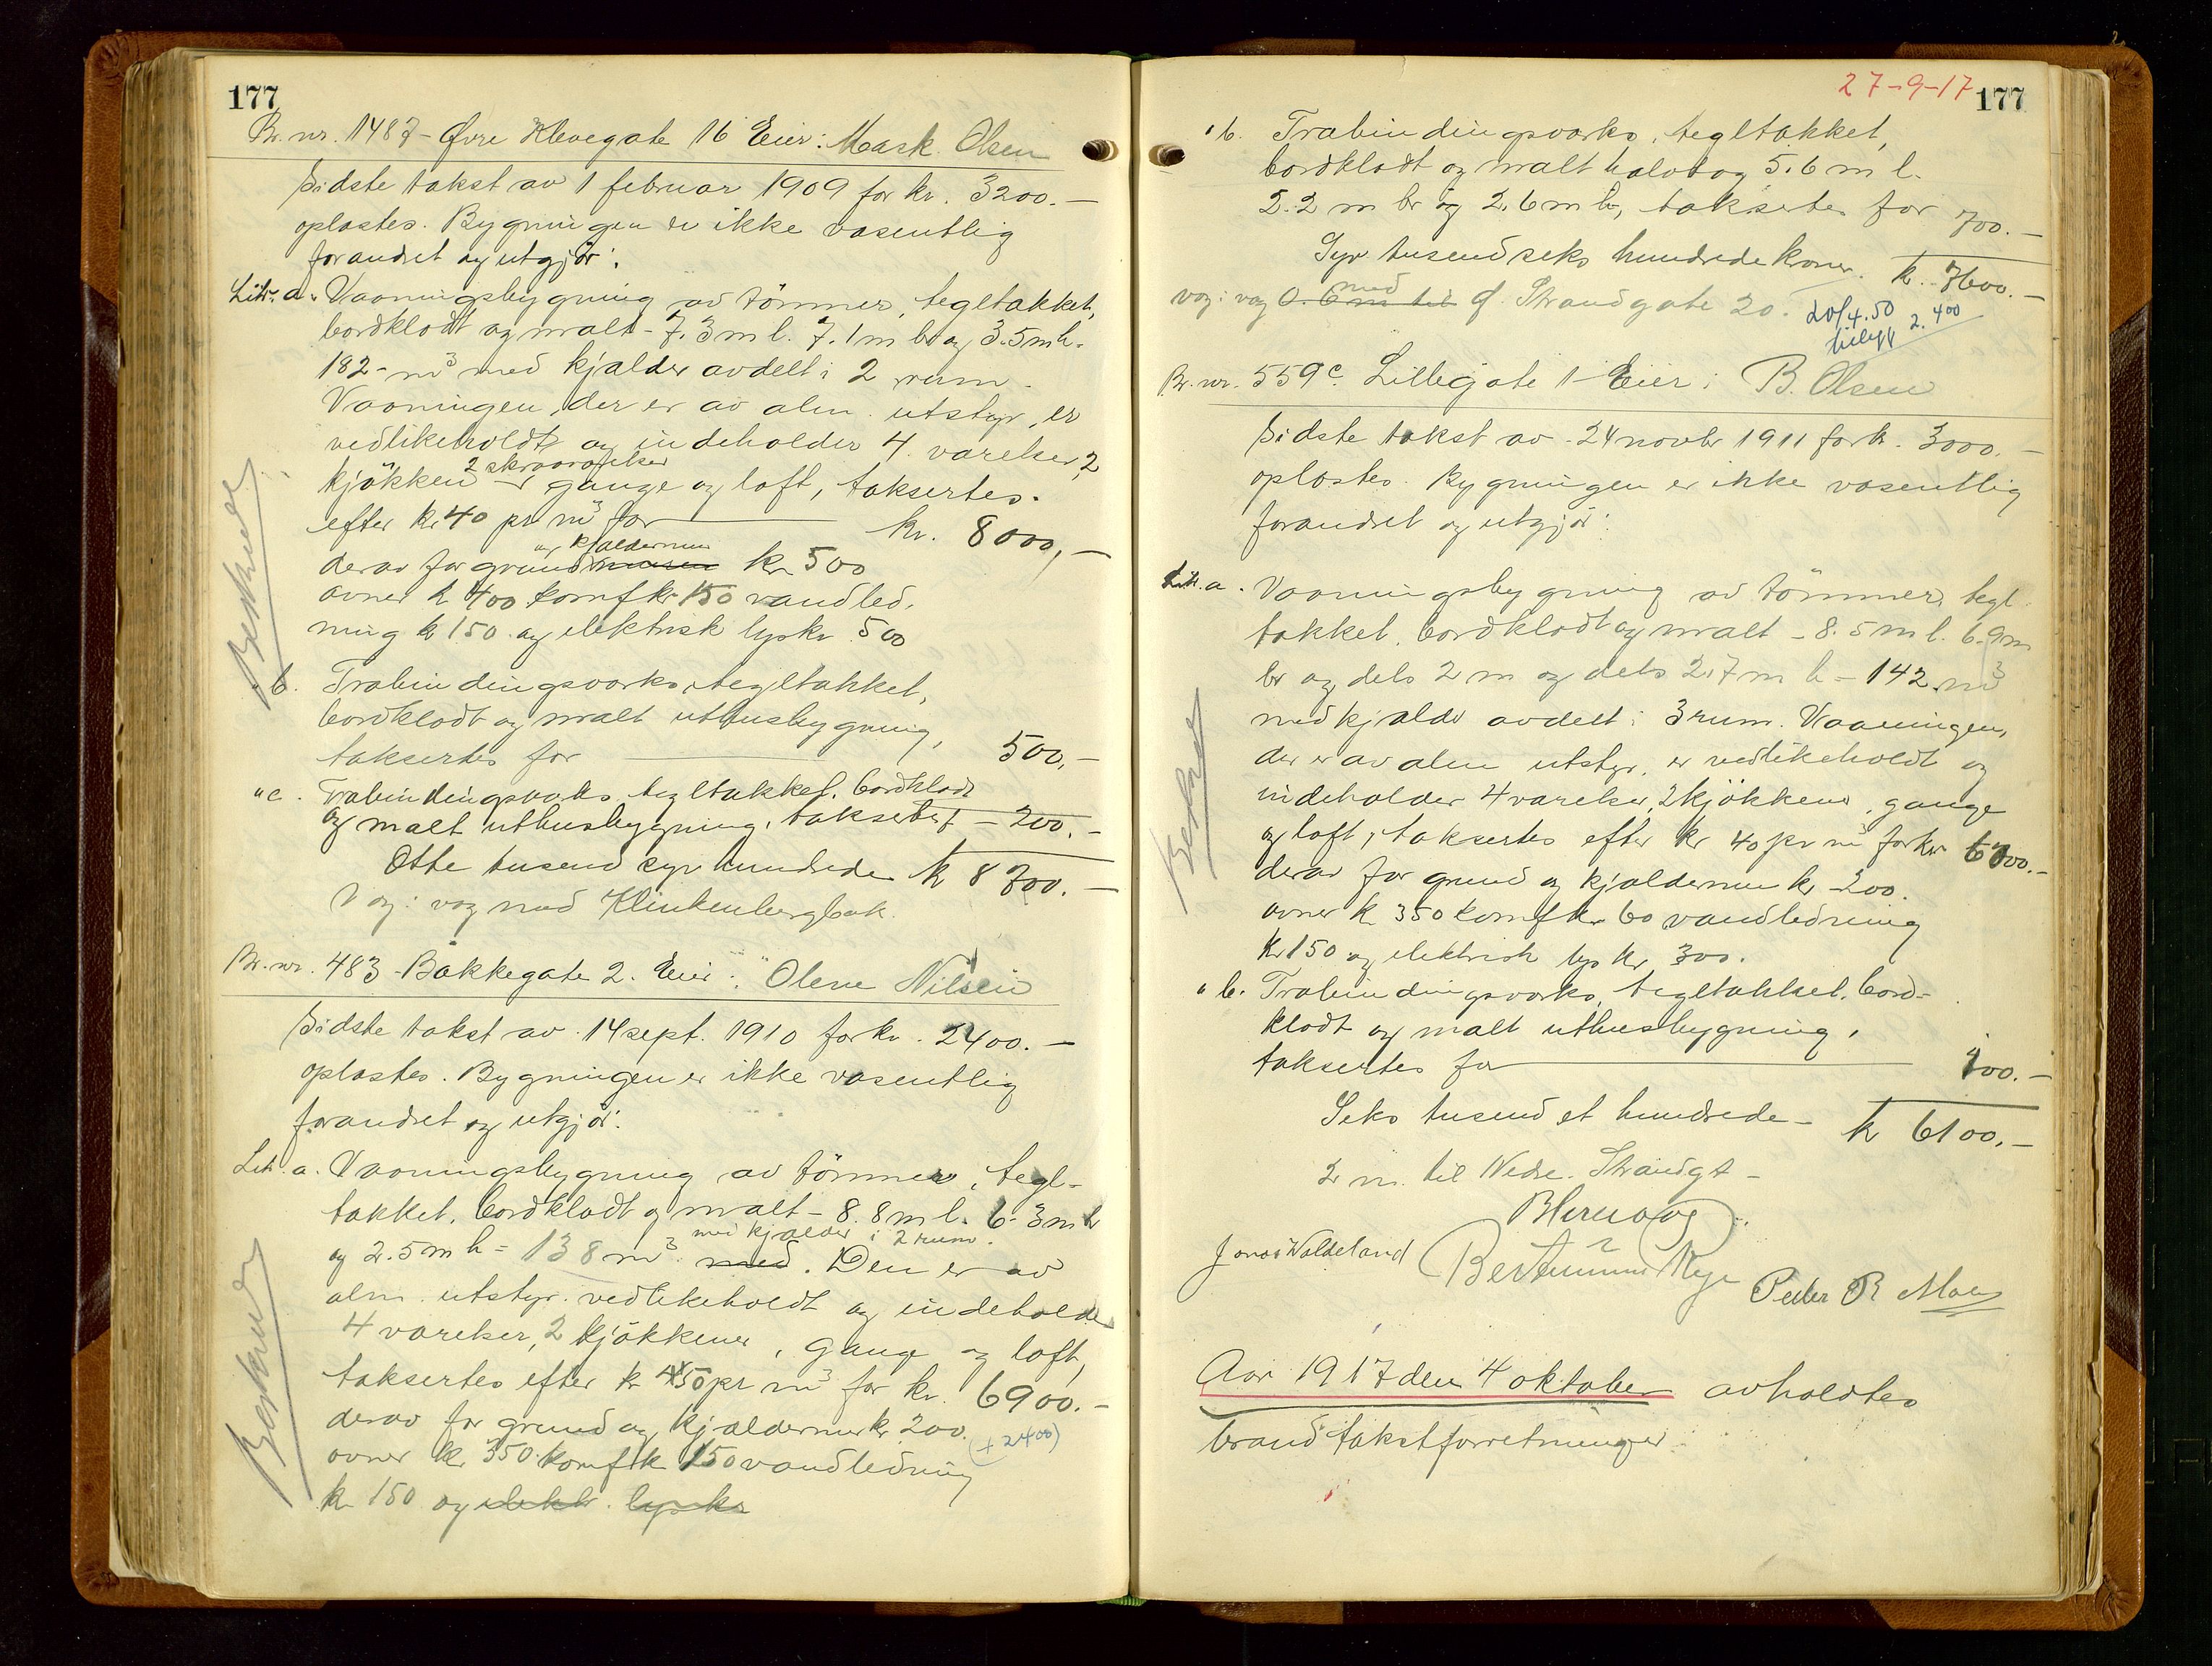 177
Br. nr. 1487 - Øvre Klevegate 16 Eier: Mask. Olsen
Sidste takst av 1 februar 1909 for kr. 3200.-
oplæstes. Bygningen er ikke væsentlig
forandret og utgjör:
Litr. a. Vaaningsbygning av tömmer, tegltækket,
bordklædt og malt - 7.3 m l. 7.1 m br og 3.5 m h.
182 - m³ med kjælder avdelt i 2 rum.
Vaaningen, der er av alm. utstyr, er
vedlikeholdt og indeholder 4 værelser, 2
2 skraaværelser
kjökken - gange og loft, taksertes.
efter kr 40 pr m³ for kr. 8000,-
og kjældermur
derav for grundmuren kr 500
ovner k 400 komf kr 150 vandled.
ning k 150. og elektrisk lys kr. 500
Beskrevet
" b. Træbindingsværks, tegltækket,
bordklædt og malt uthusbygning,
taksertes for 500,-
" c. Træbindingsværks tegltækket. bordklædt
og malt uthusbygning, takseret - 200.-
Otte tusend syv hundrede k 8700.-
V og i væg med Klinkenbergbak.
Br. nr. 483 - Bakkegate 2. Eier: Olene Nilsen
Sidste takst av 14 sept. 1910 for kr. 2400.-
oplæstes. Bygningen er ikke væsentlig
forandret og utgjör:
Litr. a. Vaaningsbygning av tömmer, tegl-
tækket, bordklædt og malt - 8.8 m l. 6.3 m br
med kjælder i 2 rum.
og 2.5 m h = 138 m³ med. Den er av
alm. utstyr. vedlikeholdt og indeholder
4 værelser, 2 kjökkener, gange og loft,
taksertes efter k 50 pr m³ for kr. 6900.-
derav for grund og kjældermur kr 200.
(+ 2400)
ovner kr 350 komf k 150 vandledning
k 150 og elektr. lys kr
Beskrevet
27-9-17
177
" b. Træbindingsværks, tegltækket,
bordklædt og malt halvtag 5.6 m l.
2.2 m br og 2.6 m h, taksertes for 700.-
Syv tusend seks hundrede kroner. k. 7600.-
væg i væg med 0.6 m til Ø. Strandgate 20.
20/4.50
tillegg 2.400
Br. nr. 559c. Lillegate 1 - Eier: B. Olsen
Sidste takst av 24 novbr 1911 for k. 3000.-
oplæstes. Bygningen er ikke væsentlig
forandret og utgjör:
Litr. a. Vaaningsbygning av tömmer, tegl-
tækket, bordklædt og malt - 8.5 m l. 6.9 m
br og dels 2 m og dels 2.7 m h = 142 m³
med kjælder avdelt i 3 rum. Vaaningen,
der er av alm utstyr, er vedlikeholdt og
indeholder 4 værelser, 2 kjökkener, gange
og loft, taksertes efter kr 40 pr m³ for kr 5700.-
derav for grund og kjældermur kr 200.
ovner k 350 komf kr 60 vandledning
kr 150 og elektrisk lys kr. 300.
Beskrevet
" b. Træbindingsværks, tegltækket. bord-
klædt og malt uthusbygning,
taksertes for 400.-
Seks tusend et hundrede - k 6100.-
2 m. til Nedre. Strandgt -
Jonas Waldeland
Peder R Moen
Aar 1917 den 4 oktober avholdtes
brandtakstforretninger.